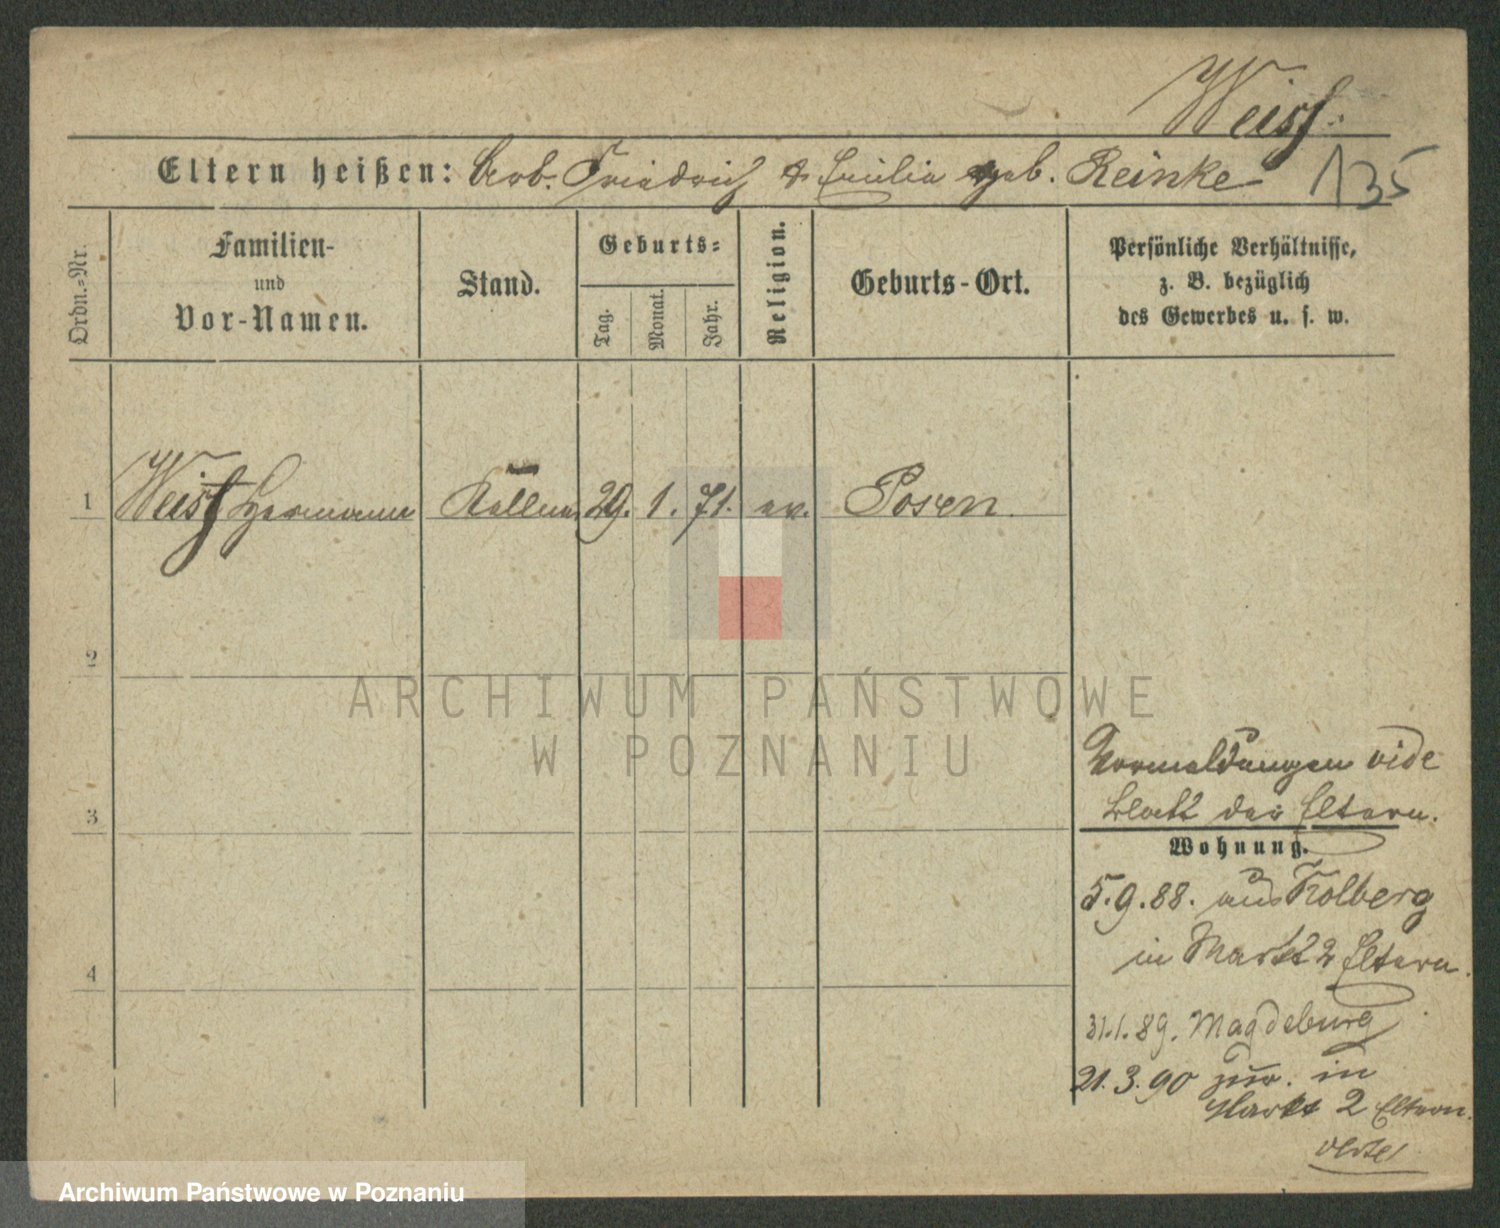 Weiss.
Eltern heißen: Arb. Friedrich & Emilie geb. Reinke
135
Ordn.-Nr.
Familien-
und
Vor-Namen.
Stand.
Geburts-
Tag.
Monat.
Jahr.
Religion.
Geburts-Ort.
Persönliche Verhältnisse,
z. B. bezüglich
des Gewerbes u. s. w.
1 Weiss Hermann Kellner 29. 1. 71. ev. Posen.
2
3
4
Vormeldungen vide
Blatt der Eltern.
Wohnung.
5.9.88. aus Kolberg
in Markt 2 Eltern.
31.1.89. Magdeburg
21.3.90 zur. in
Markt 2 Eltern.
ARCHIWUM PAŃSTWOWE
W POZNANIU
Archiwum Państwowe w Poznaniu